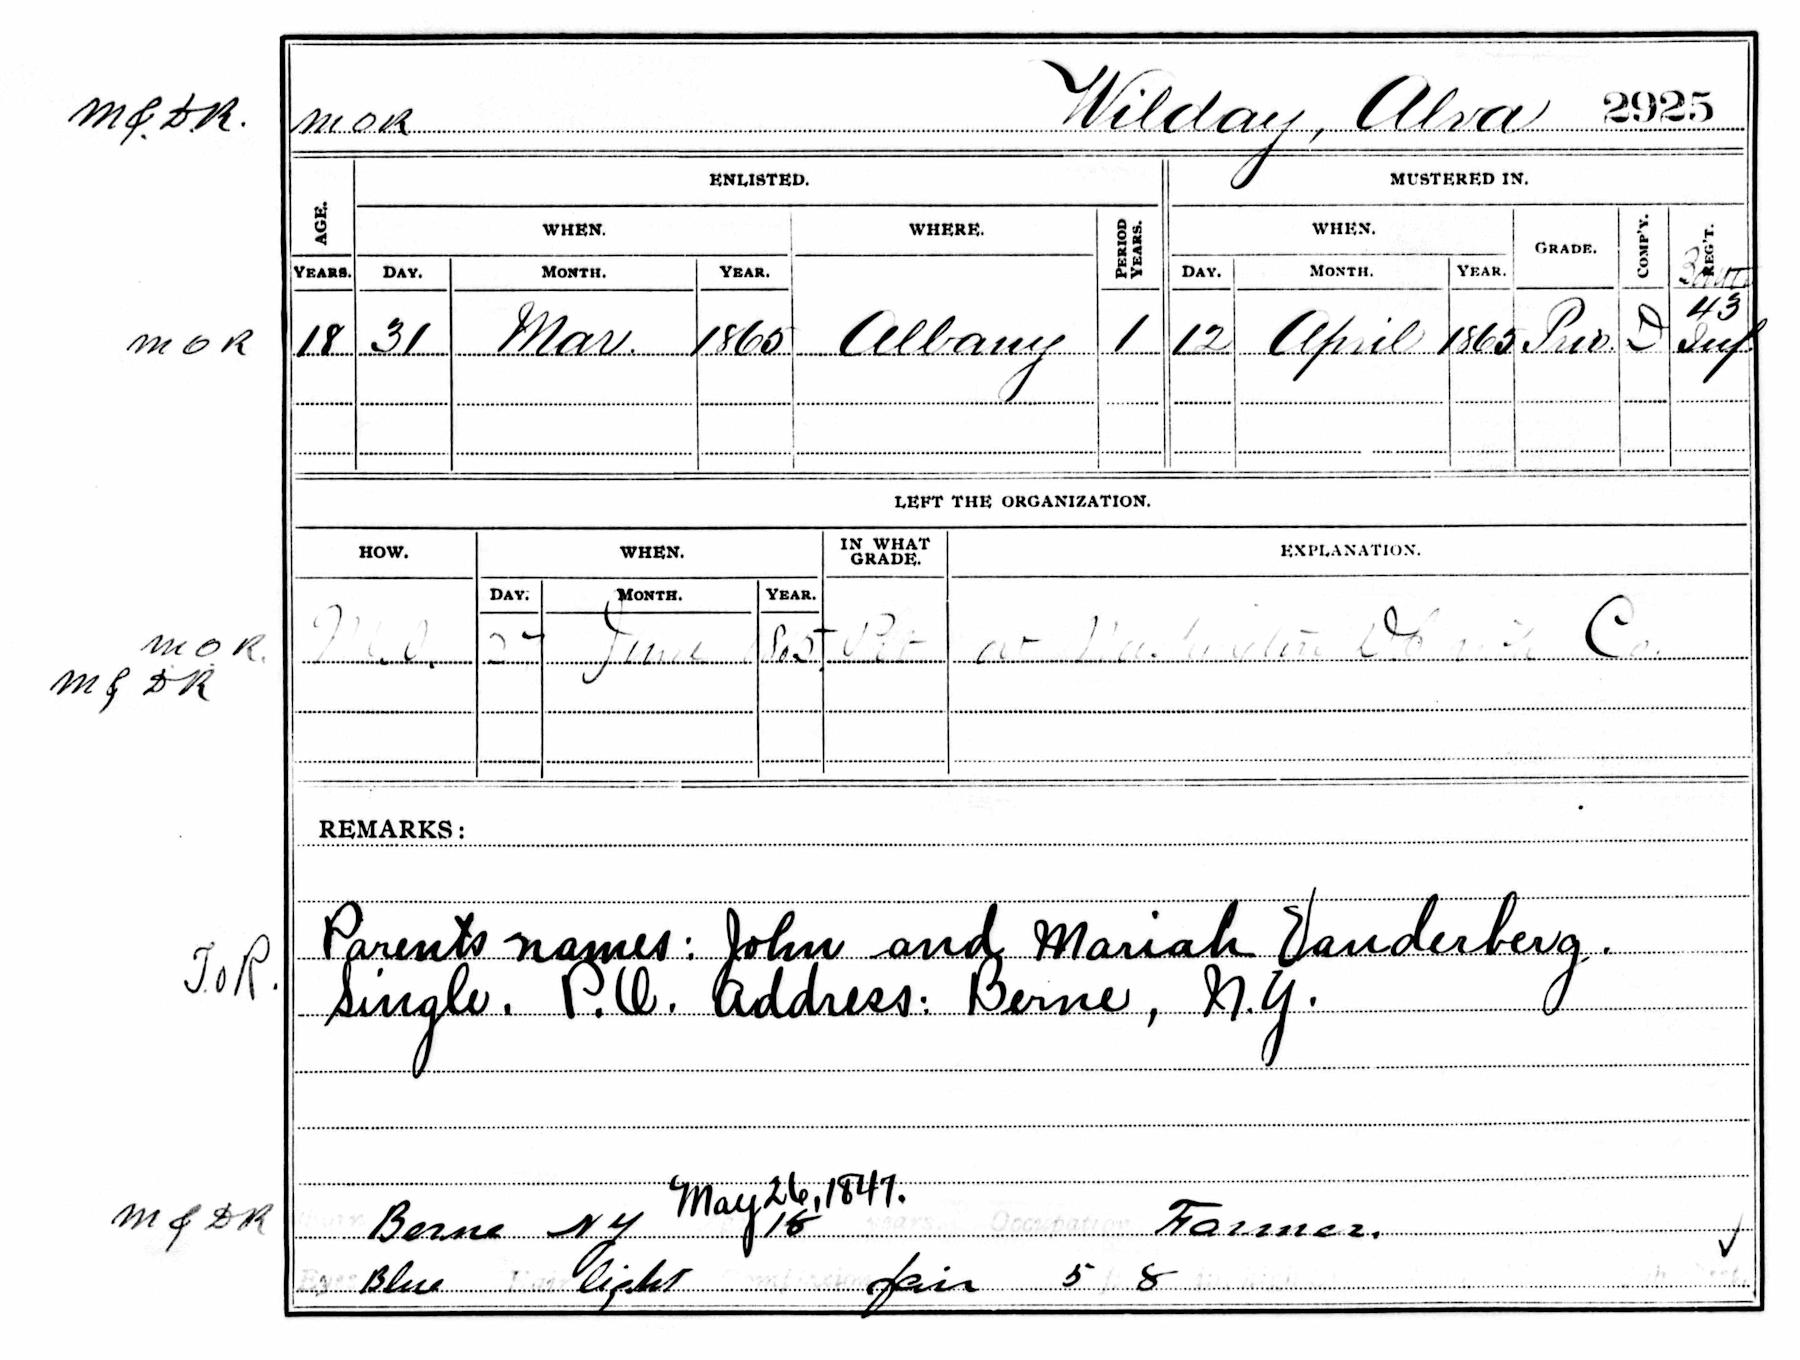 M & D.R. M O R Wilday, Alva 2925
ENLISTED. MUSTERED IN.
AGE. WHEN. WHERE. PERIOD YEARS. WHEN. GRADE. COMP'Y. REG'T.
YEARS. DAY. MONTH. YEAR. DAY. MONTH. YEAR.
43
M O R 18 31 Mar. 1865 Albany 1 12 April 1865 Priv. D Inf.
LEFT THE ORGANIZATION.
HOW. WHEN. IN WHAT GRADE. EXPLANATION.
DAY. MONTH. YEAR.
M O R. M.O. 27 June 1865 Pvt at Washington D C with Co.
M & D R
REMARKS:
Parents names: John and Mariah Vanderberg.
T.O.R. Single. P.O. Address: Berne, N.Y.
May 26, 1847.
M & D R Berne N Y 18 years Occupation Farmer.
Eyes Blue Hair light Complexion fair 5 8